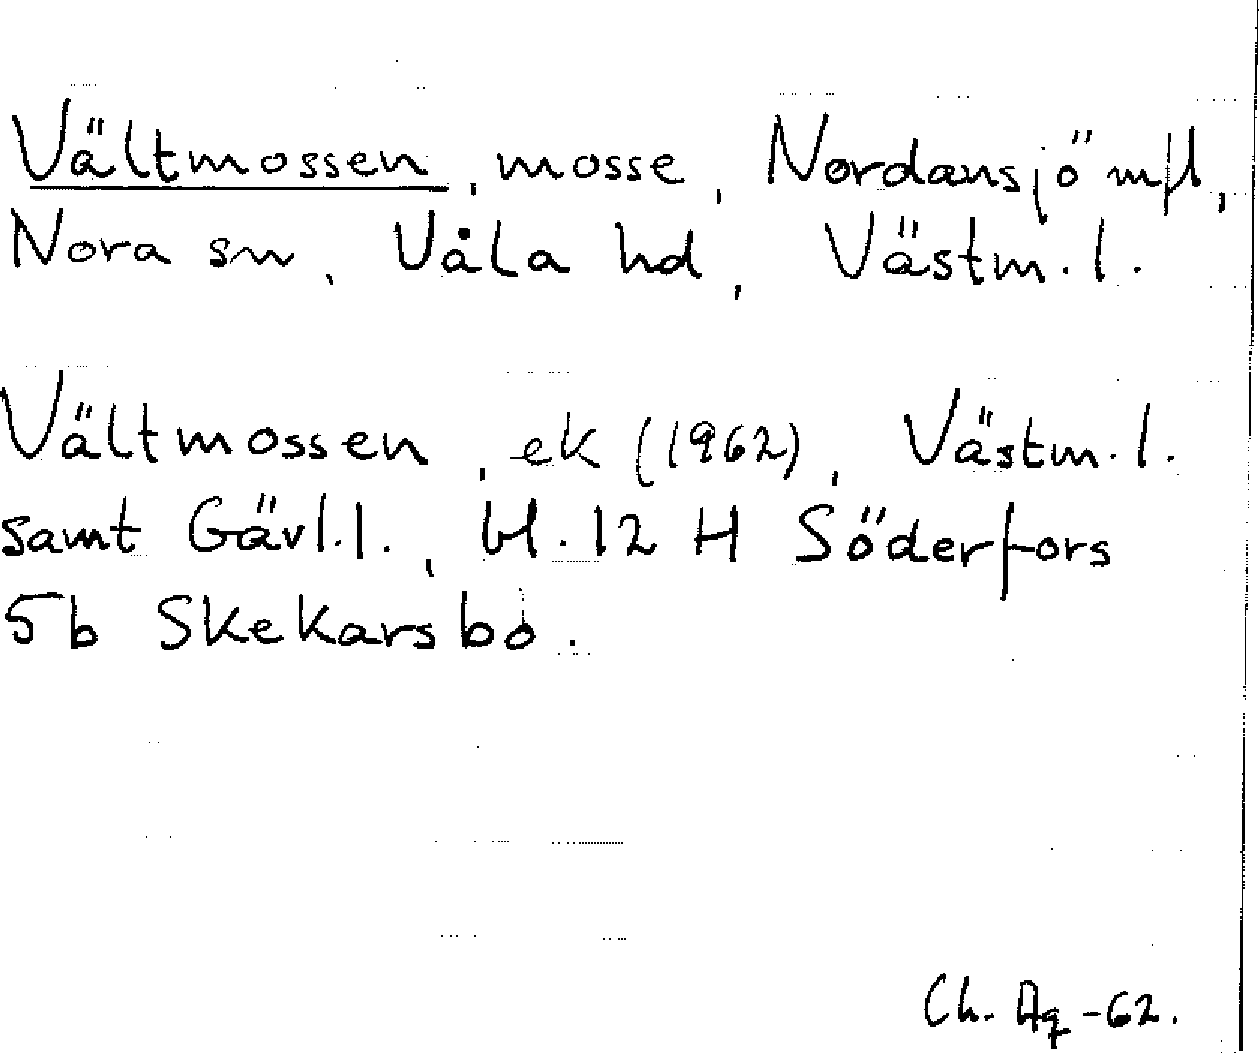 Vältmossen, mosse, Nordansjö mfl,
Nora sn, Våla hd, Västm.l.
Vältmossen, ek (1962), Västm.l.
samt Gävl.l., bl. 12 H Söderfors
5b Skekarsbo.
Ch. Aq -62.